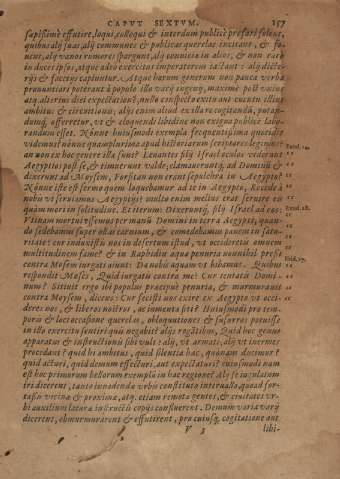 CAPUT SEXTUM. 157
sapissimè effutire, loqui, colloqui & interdum publicè profari solent,
quibus alij suas, alij communes & publicas querelas excitant, & fo-
uent, alij vanos rumores spargunt, alij conuicia in alios, & non rarò
in duces ipsos, atque adeo exercitus imperatorem iactant: alij dicte-
rijs & facetijs capiuntur. Atque harum generum non pauca verba
pronuntiare poterant è populo illo varij ingenij, maximè post vnius
atq. alterius diei expectationem, nullo conspecto etiam aut euentu illius
ambitus & circuitionis; alijs enim aliud ex illa cogitandi,
di, offerretur, vt & eloquendi libidine non exigua publicè labo-
randum esset. Nónne huiusmodi exempla frequentissima quotidie
videmus? nónne quamplurima apud historiarum scriptores legimus?
an non ex hoc genere illa sunt? Leuantes filij Israel oculos viderunt Exod. 14.
Aegyptios post se, & timuerunt valde; clamauerúntq. ad Dominũ &
dixerunt ad Moysem, Forsitan non erant sepulchra in Aegypto?
Nónne iste est sermo quem loquebamur ad te in Aegypto, Recede à
nobis vt seruiamus Aegyptijs? multo enim melius erat seruire eis
quàm mori in solitudine. Et iterum: Dixerúntq. filij Israel ad eos:
Vtinam mortui essemus per manũ Domini in terra Aegypti, quan-
do sedebamus super ollas carnium, & comedebamus panem in satu-
ritate: cur induxistis nos in desertum istud, vt occideretis omnem
multitudinem fame? & in Raphidin aqua penuria nonnihil pressi
contra Mosem iurgati aiunt: Da nobis aquam vt bibamus. Quibus
respondit Moses, Quid iurgatis contra me? Cur tentatis Domi- Exod. 17.
num? Sitiuit ergo ibi populus præ aquæ penuria, & murmurauit
contra Moysem, dicens: Cur fecisti nos exire ex Aegypto vt occi-
deres nos, & liberos nostros, ac iumenta siti? Huiusmodi pro tem-
poris & loci occasione querelas, obloquutiones & susurros potuisse
in illo exercitu sentiri quis negabit? alijs rogātibus, Quid hoc genus
apparatus & instructionis sibi vult? alij, vt armati, alij vt inermes
procedant? quid hi ambitus, quid silentia hac, quonam docimur?
quid acturi, quid demum effecturi, aut expectaturi? cuiusmodi nam
est hoc primorum bellorum exemplum in hac regione? Alij se insulsum
iri dicerent, tanto inuadendæ vrbis constituto interuallo, quoad for-
tassis vicinæ & proximæ, atq. etiam remota gentes, & ciuitates vr-
bi auxilium latura instructis copijs confluerent. Demum varia varij
dicerent, obmurmurarent & effutirent, pro cuiusq. cogitatione aut
V 3 libi-